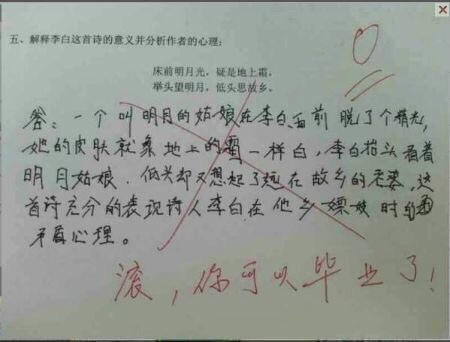 五、解释李白这首诗的意义并分析作者的心理:
床前明月光，疑是地上霜，
举头望明月，低头思故乡。
0
答：一个叫明月的姑娘在李白面前脱了个精光，
她的皮肤就象地上的霜一样白，李白抬头看着
明月姑娘.低头却又想起了远在故乡的老婆，这
首诗充分的表现诗人李白在他乡嫖妓时的
矛盾心理。
滚，你可以毕业了!